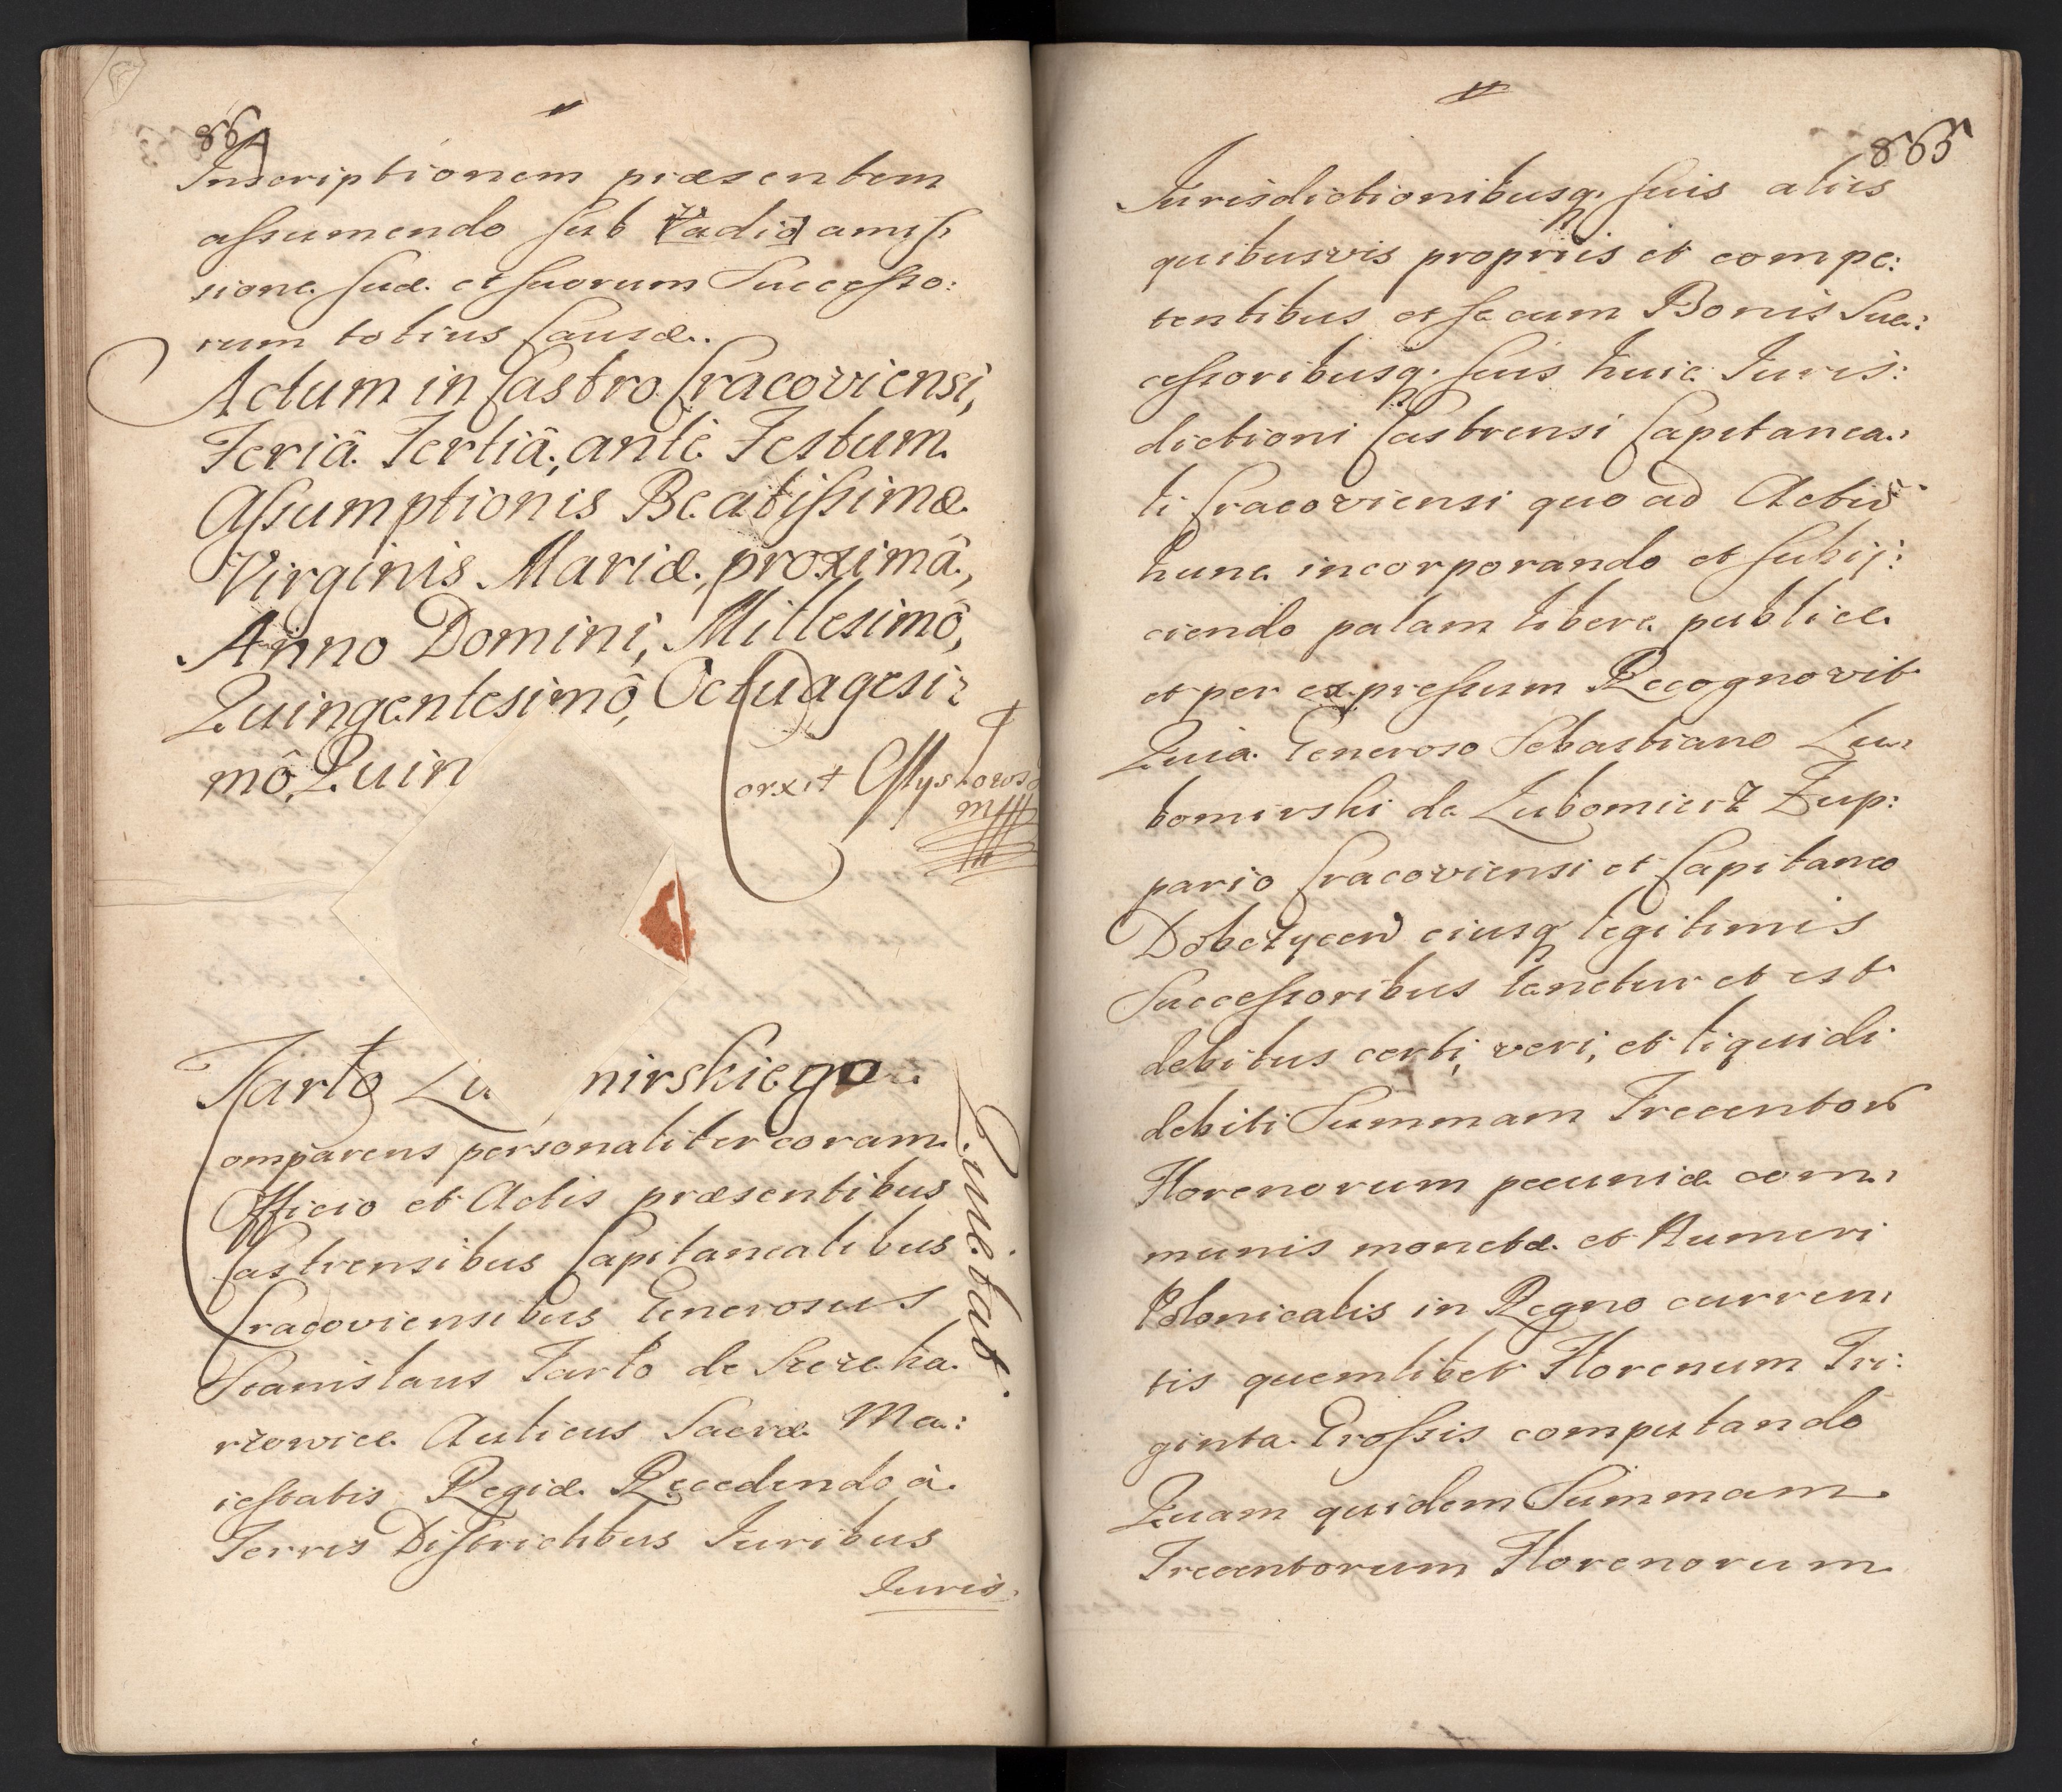 864
Inscriptionem præsentem
assumendo sub Vadio amis
sione suæ et suorum Successo:
rum totius Causæ.
Actum in Castro Cracoviensi,
Feriâ Tertiâ, ante Festum
Assumptionis Beatissimæ
Virginis Mariæ, proximâ,
Anno Domini, Millesimô,
Quingentesimô, Octuagesi:
mô, Quin
Jarło Lu nirskiego
Comparens personaliter coram
Officio et Actis præsentibus
Castrensibus Capitanealibus
Cracoviensibus Generosus
Stanislaus Jarło de Szczeka
rzowice Aulicus Sacræ Ma:
iestatis Regiæ Recedendo à
Terris Districtibus Iuribus
Iuris
Luebat.
865
Iurisdictionibusq. suis aliis
quibusvis propriis et compe:
tentibus et se cum Bonis Suc:
cessoribusq. suis huic Iuris:
dictioni Castrensi Capitanea:
li Cracoviensi quo ad Actũ
hunc incorporando et subij:
ciendo palam libere publice
et per expressum Recognovit
Quia Generoso Sebastiano Lu:
bomirski de Lubomierz Zup:
pario Cracoviensi et Capitaneo
Dobczycen eiusq legitimis
Successoribus tenetur et est
debitus certi, veri, et liquidi
debiti Summam Trecentorũ
Florenorum pecuniæ com:
munis monetæ et Numeri
Polonicalis in Regno curren:
tis quemlibet Florenum Tri:
ginta Grossis computando
Quam quidem Summam
Trecentorum Florenorum